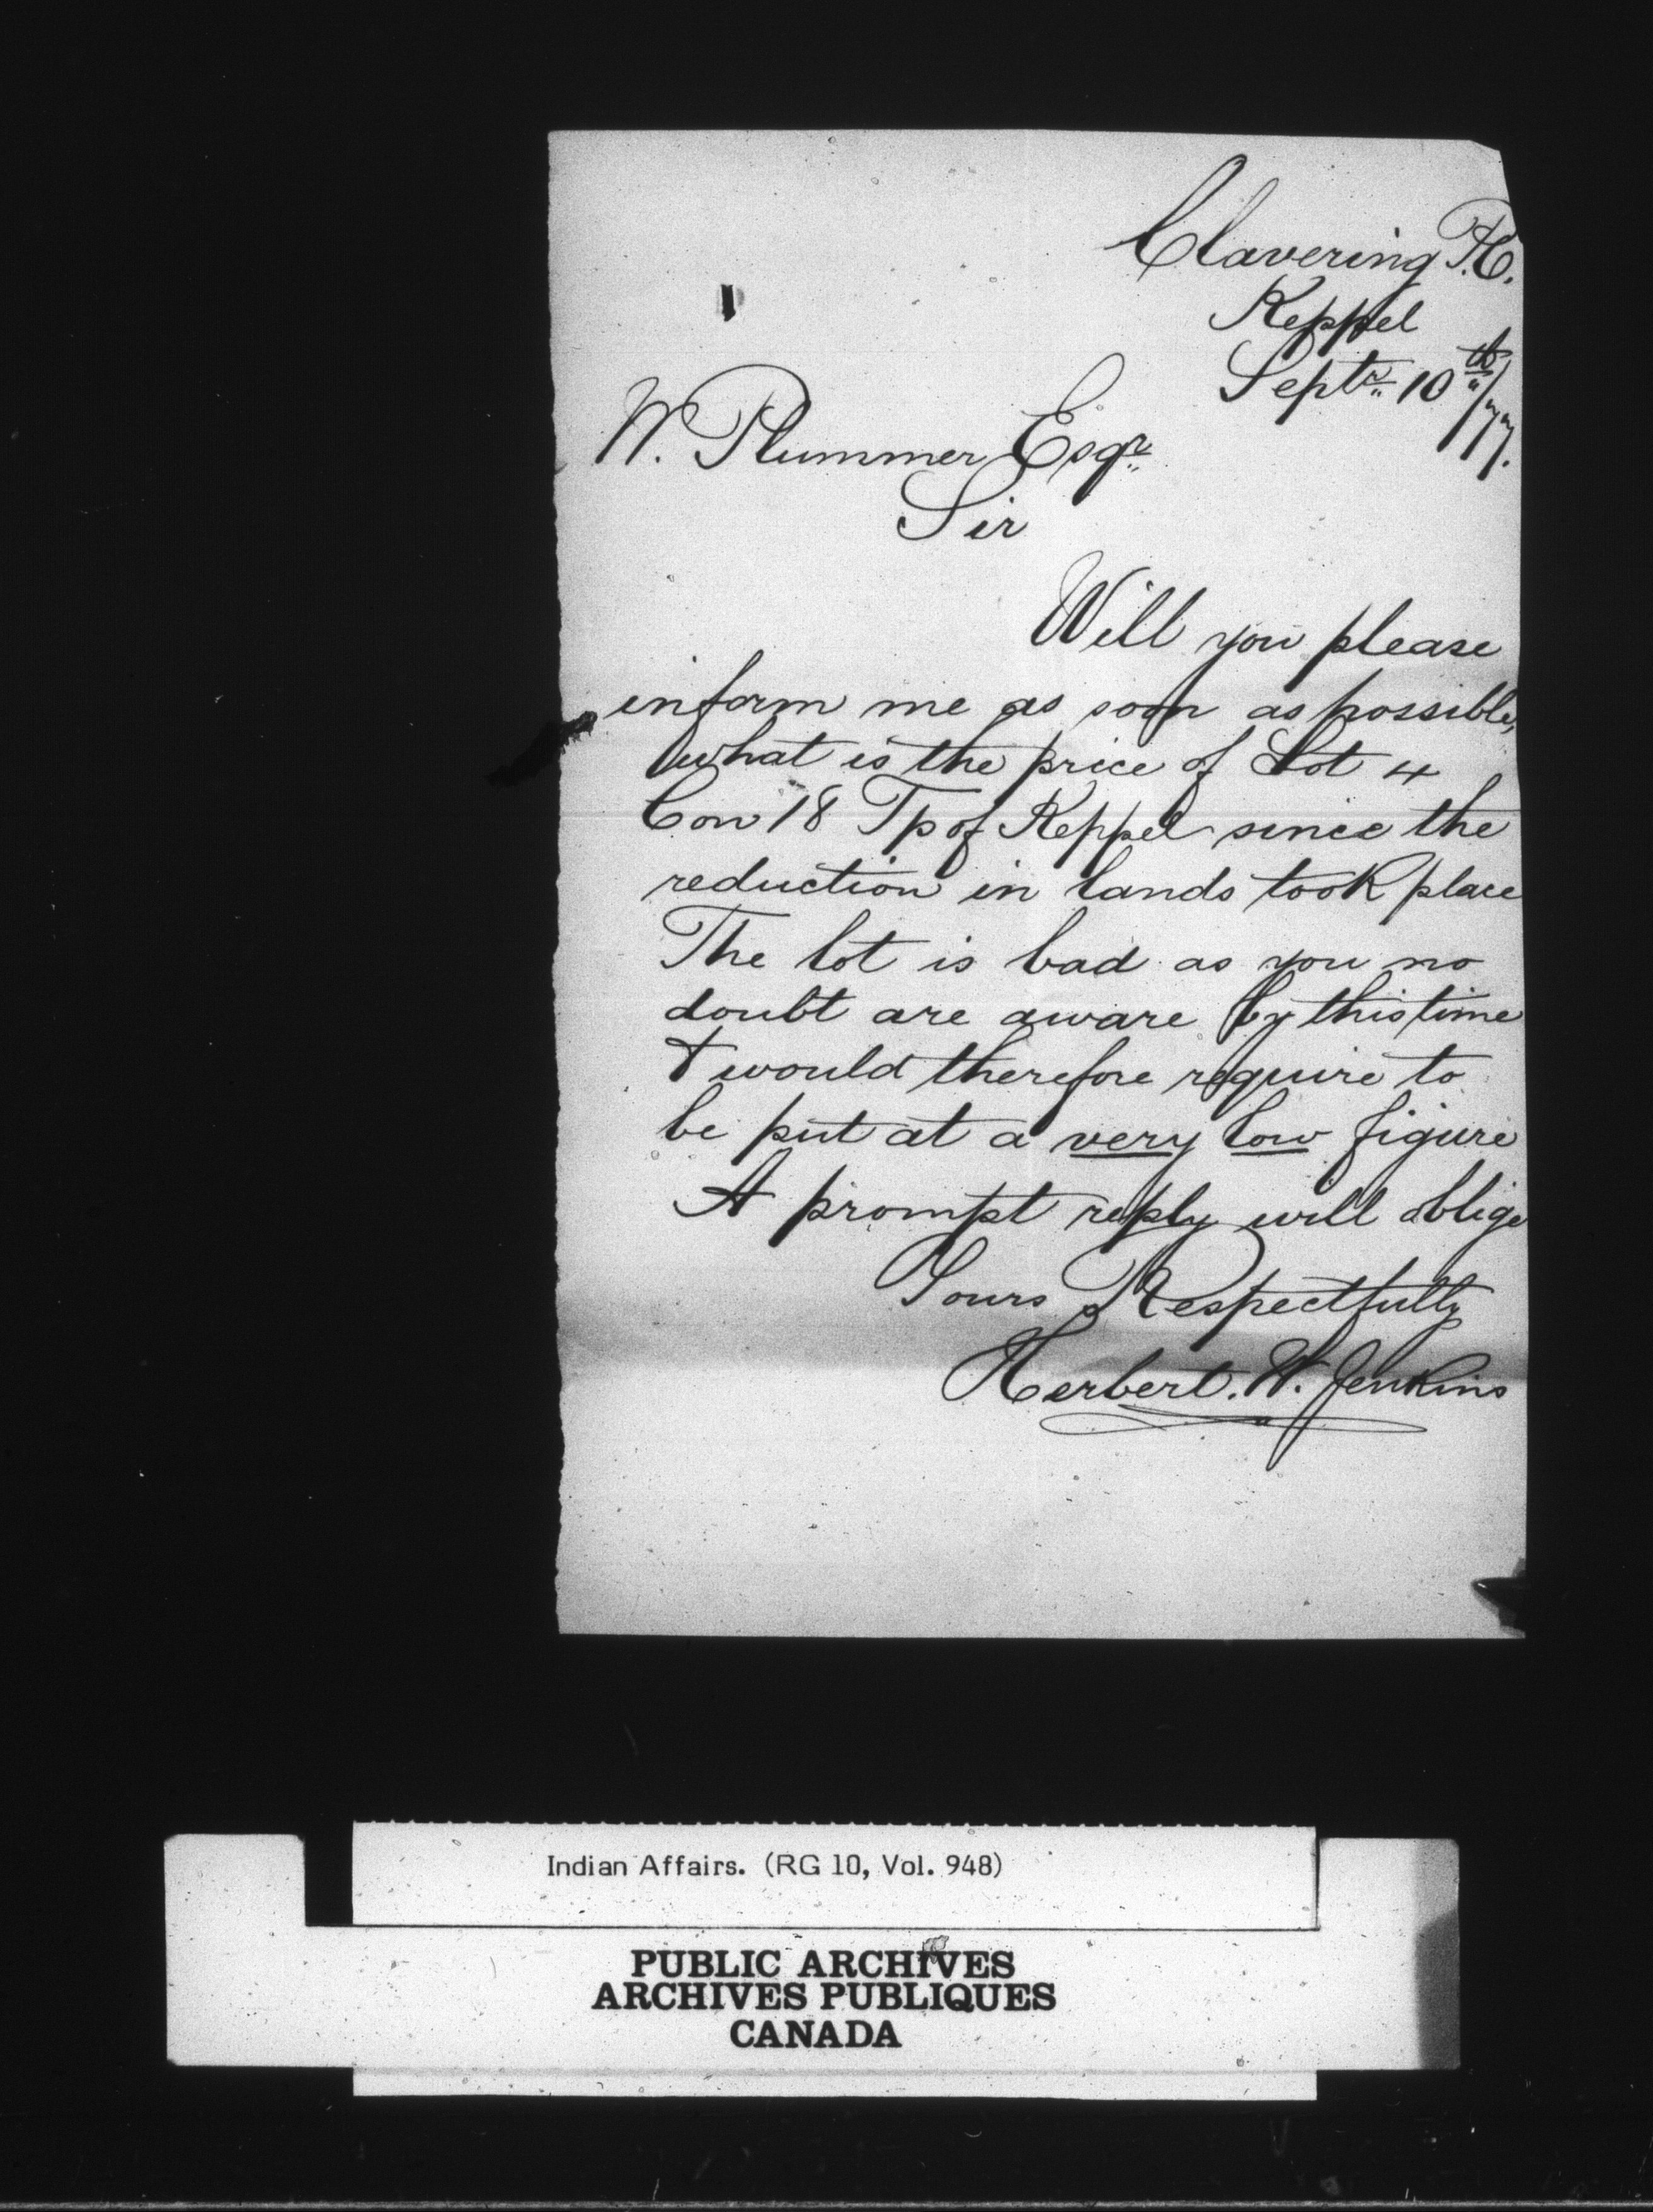 Clavering P.O.
Keppel
Septr. 10th/77.
W. Plummer Esqr.
Sir
Will you please
inform me as soon as possible,
what is the price of Lot 4
Con 18 Tp of Keppel since the
reduction in lands took place
The lot is bad as you no
doubt are aware by this time
& would therefore require to
be put at a very low figure
A prompt reply will oblige
Yours Respectfully
Herbert. W. Jenkins
Indian Affairs. (RG 10, Vol. 948)
PUBLIC ARCHIVES
ARCHIVES PUBLIQUES
CANADA